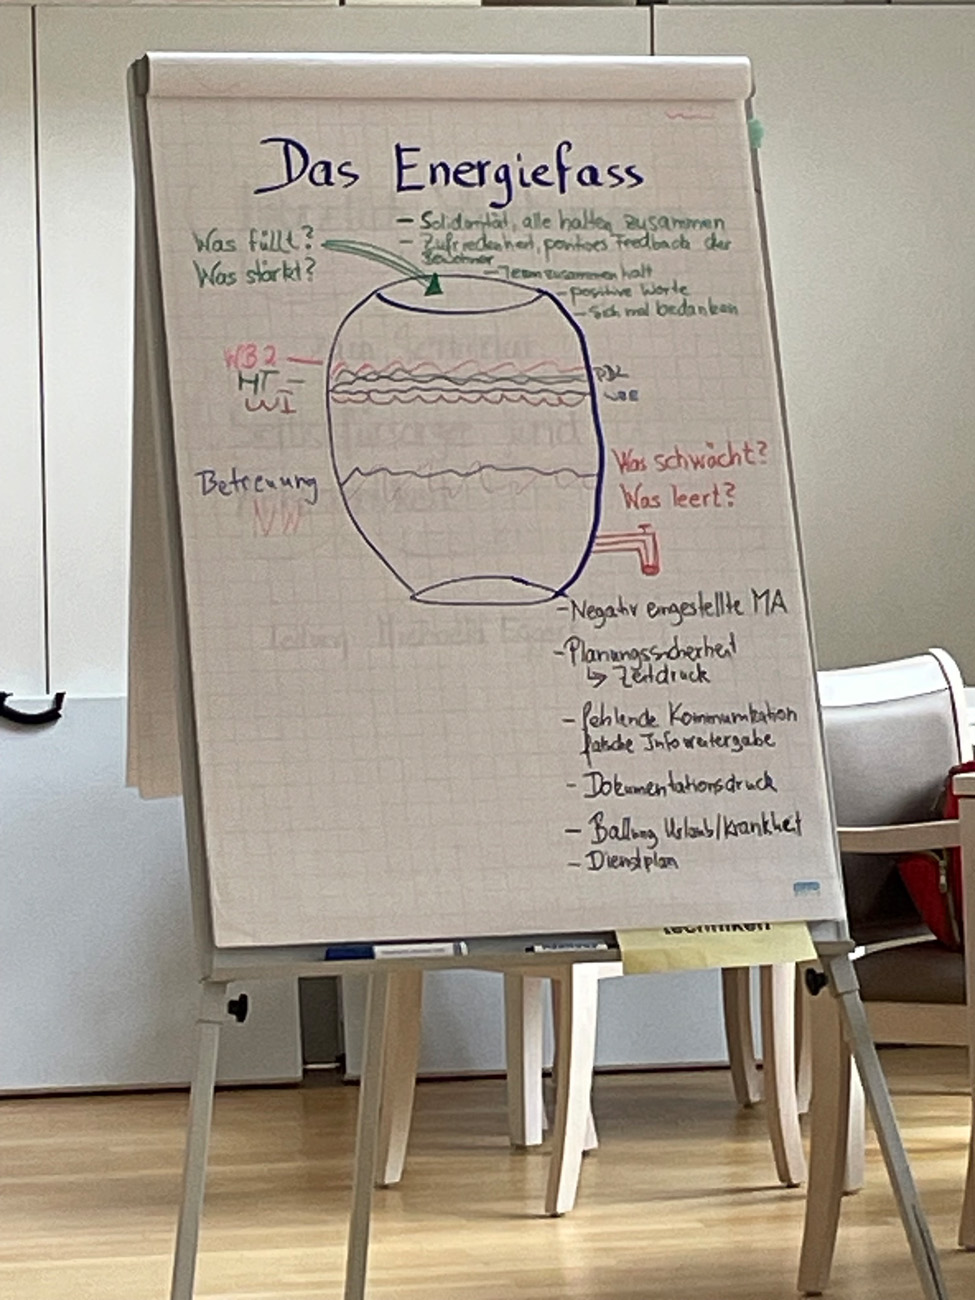 Das Energiefass
Was füllt?
Was stärkt?
- Solidarität, alle halten zusammen
- Zufriedenheit, positives Feedback der
Bewohner
- Teamzusammenhalt
- positive Worte
- Sich mal bedanken
WB 2
HT
PDL
Betreuung
NW
Was schwächt?
Was leert?
- Negativ eingestellte MA
- Planungssicherheit
↳ Zeitdruck
- fehlende Kommunikation
falsche Infoweitergabe
- Dokumentationsdruck
- Ballung Urlaub/Krankheit
- Dienstplan
techniken